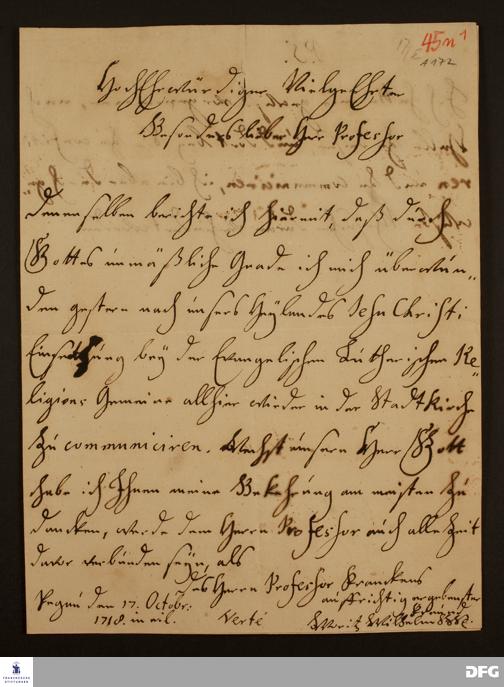 45n 1
A 172
HochEhrwürdiger Vielgeehrter
Besonders lieber Herr Professor
Denenselben berichte ich hiermit, daß durch
Gottes unmäßliche Gnade ich mich überwun-
den gestern nach unsers Heylandes Jesu Christi
Einsetzung bey der Evangelischen Lutherischen Re-
ligions Gemeine allhier wieder in der Stadtkirche
zu communiciren. Nechst unserm Herr Gott
habe ich Ihnen meine Bekehrung am meisten zu
dancken, werde dem Herrn Professor auch alle Zeit
davor verbunden seyn, als
des Herrn Professor Franckens
auffrichtig ergebenster
Freund
Pegau den 17. Octobr:
1718. in eil. Verte Moritz Wilhelm
FRANCKESCHE STIFTUNGEN
DFG